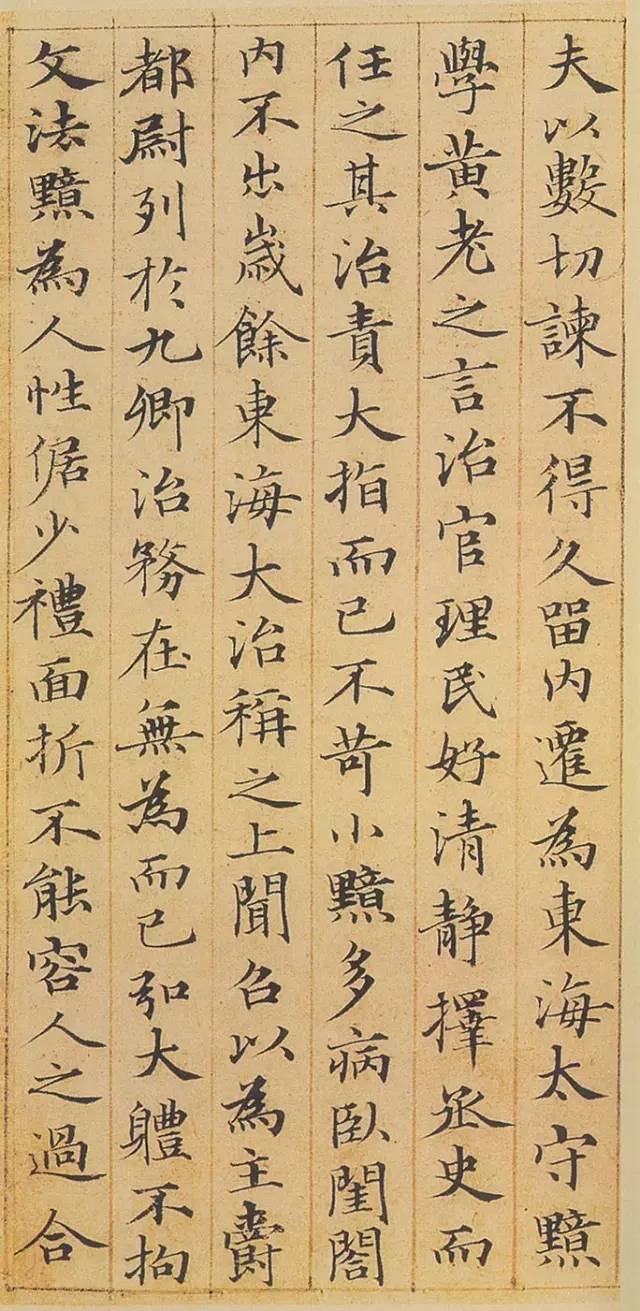 夫以數切諫不得久留内遷為東海太守黯
學黃老之言治官理民好清靜擇丞史而
任之其治責大指而已不苛小黯多病臥閨閤
内不出歲餘東海大治稱之上聞召以為主爵
都尉列於九卿治務在無為而已弘大體不拘
文法黯為人性倨少禮面折不能容人之過合